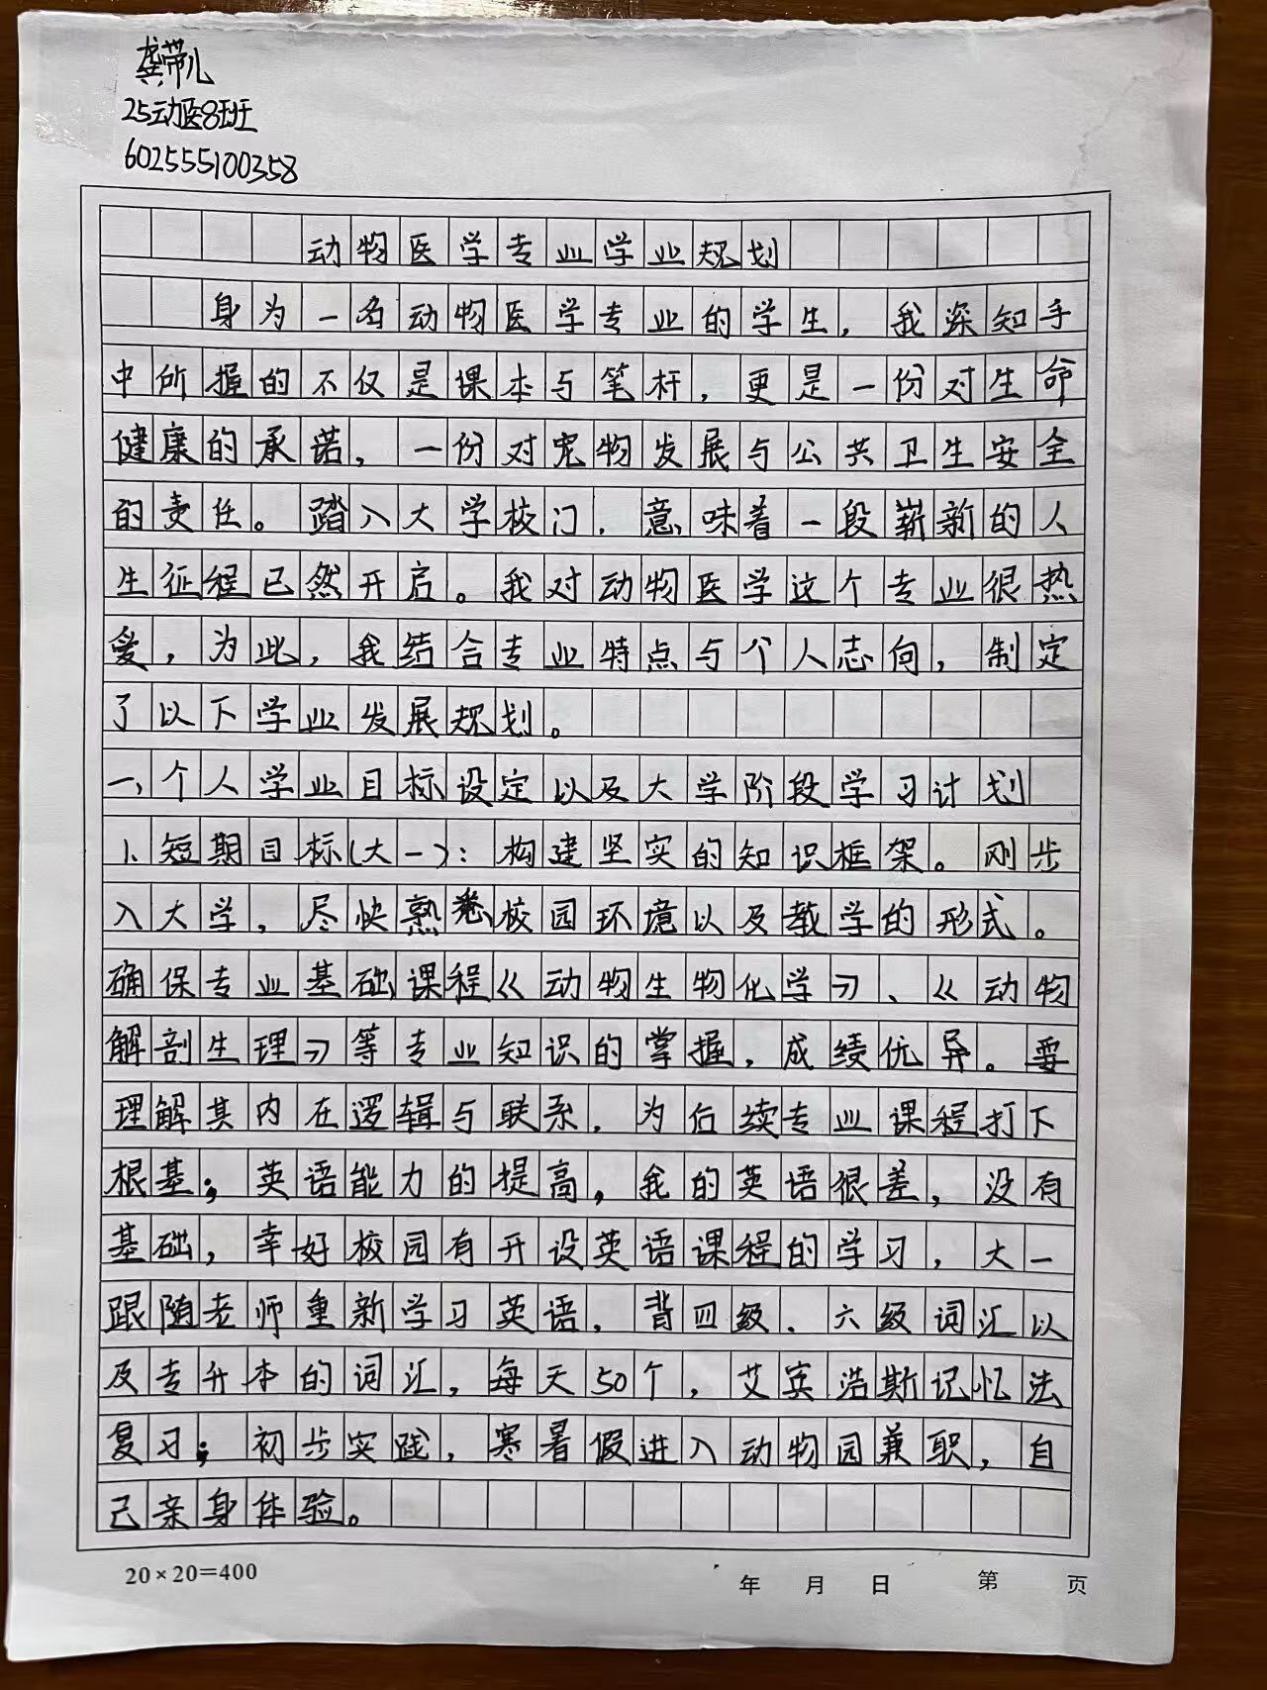 龚带儿
25动医8班
602555100358
动物医学专业学业规划
身为一名动物医学专业的学生，我深知手
中所握的不仅是课本与笔杆，更是一份对生命
健康的承诺，一份对宠物发展与公共卫生安全
的责任。踏入大学校门，意味着一段崭新的人
生征程已然开启。我对动物医学这个专业很热
爱，为此，我结合专业特点与个人志向，制定
了以下学业发展规划。
一、个人学业目标设定以及大学阶段学习计划
1、短期目标（大一）：构建坚实的知识框架。刚步
入大学，尽快熟悉校园环境以及教学的形式。
确保专业基础课程《动物生物化学》、《动物
解剖生理》等专业知识的掌握，成绩优异。要
理解其内在逻辑与联系，为后续专业课程打下
根基；英语能力的提高，我的英语很差，没有
基础，幸好校园有开设英语课程的学习，大一
跟随老师重新学习英语，背四级、六级词汇以
及专升本的词汇，每天50个，艾宾浩斯记忆法
复习；初步实践，寒暑假进入动物园兼职，自
己亲身体验。
20×20=400
年 月 日 第 页